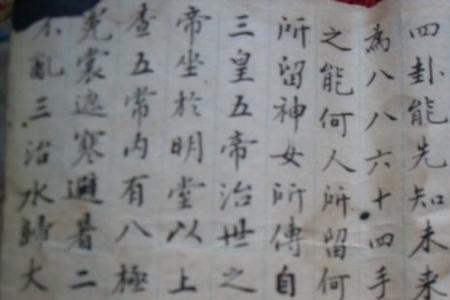 四卦能先知未来
為八八六十四手
之能何人所留何
所留神女所傳自
三皇五帝治世之
帝坐於明堂以上
查五常内有八極
衣裳遮寒避暑二
不亂三治水歸大